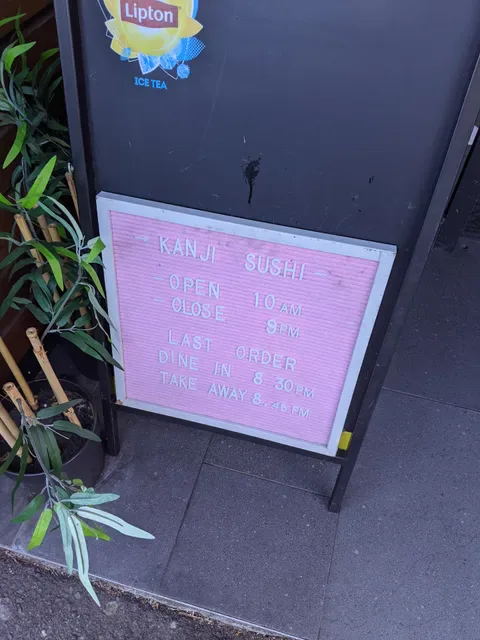 Lipton
ICE TEA
- KANJI SUSHI -
- OPEN 10 AM
- CLOSE 9 PM
LAST ORDER
DINE IN 8.30 PM
TAKE AWAY 8.45 PM